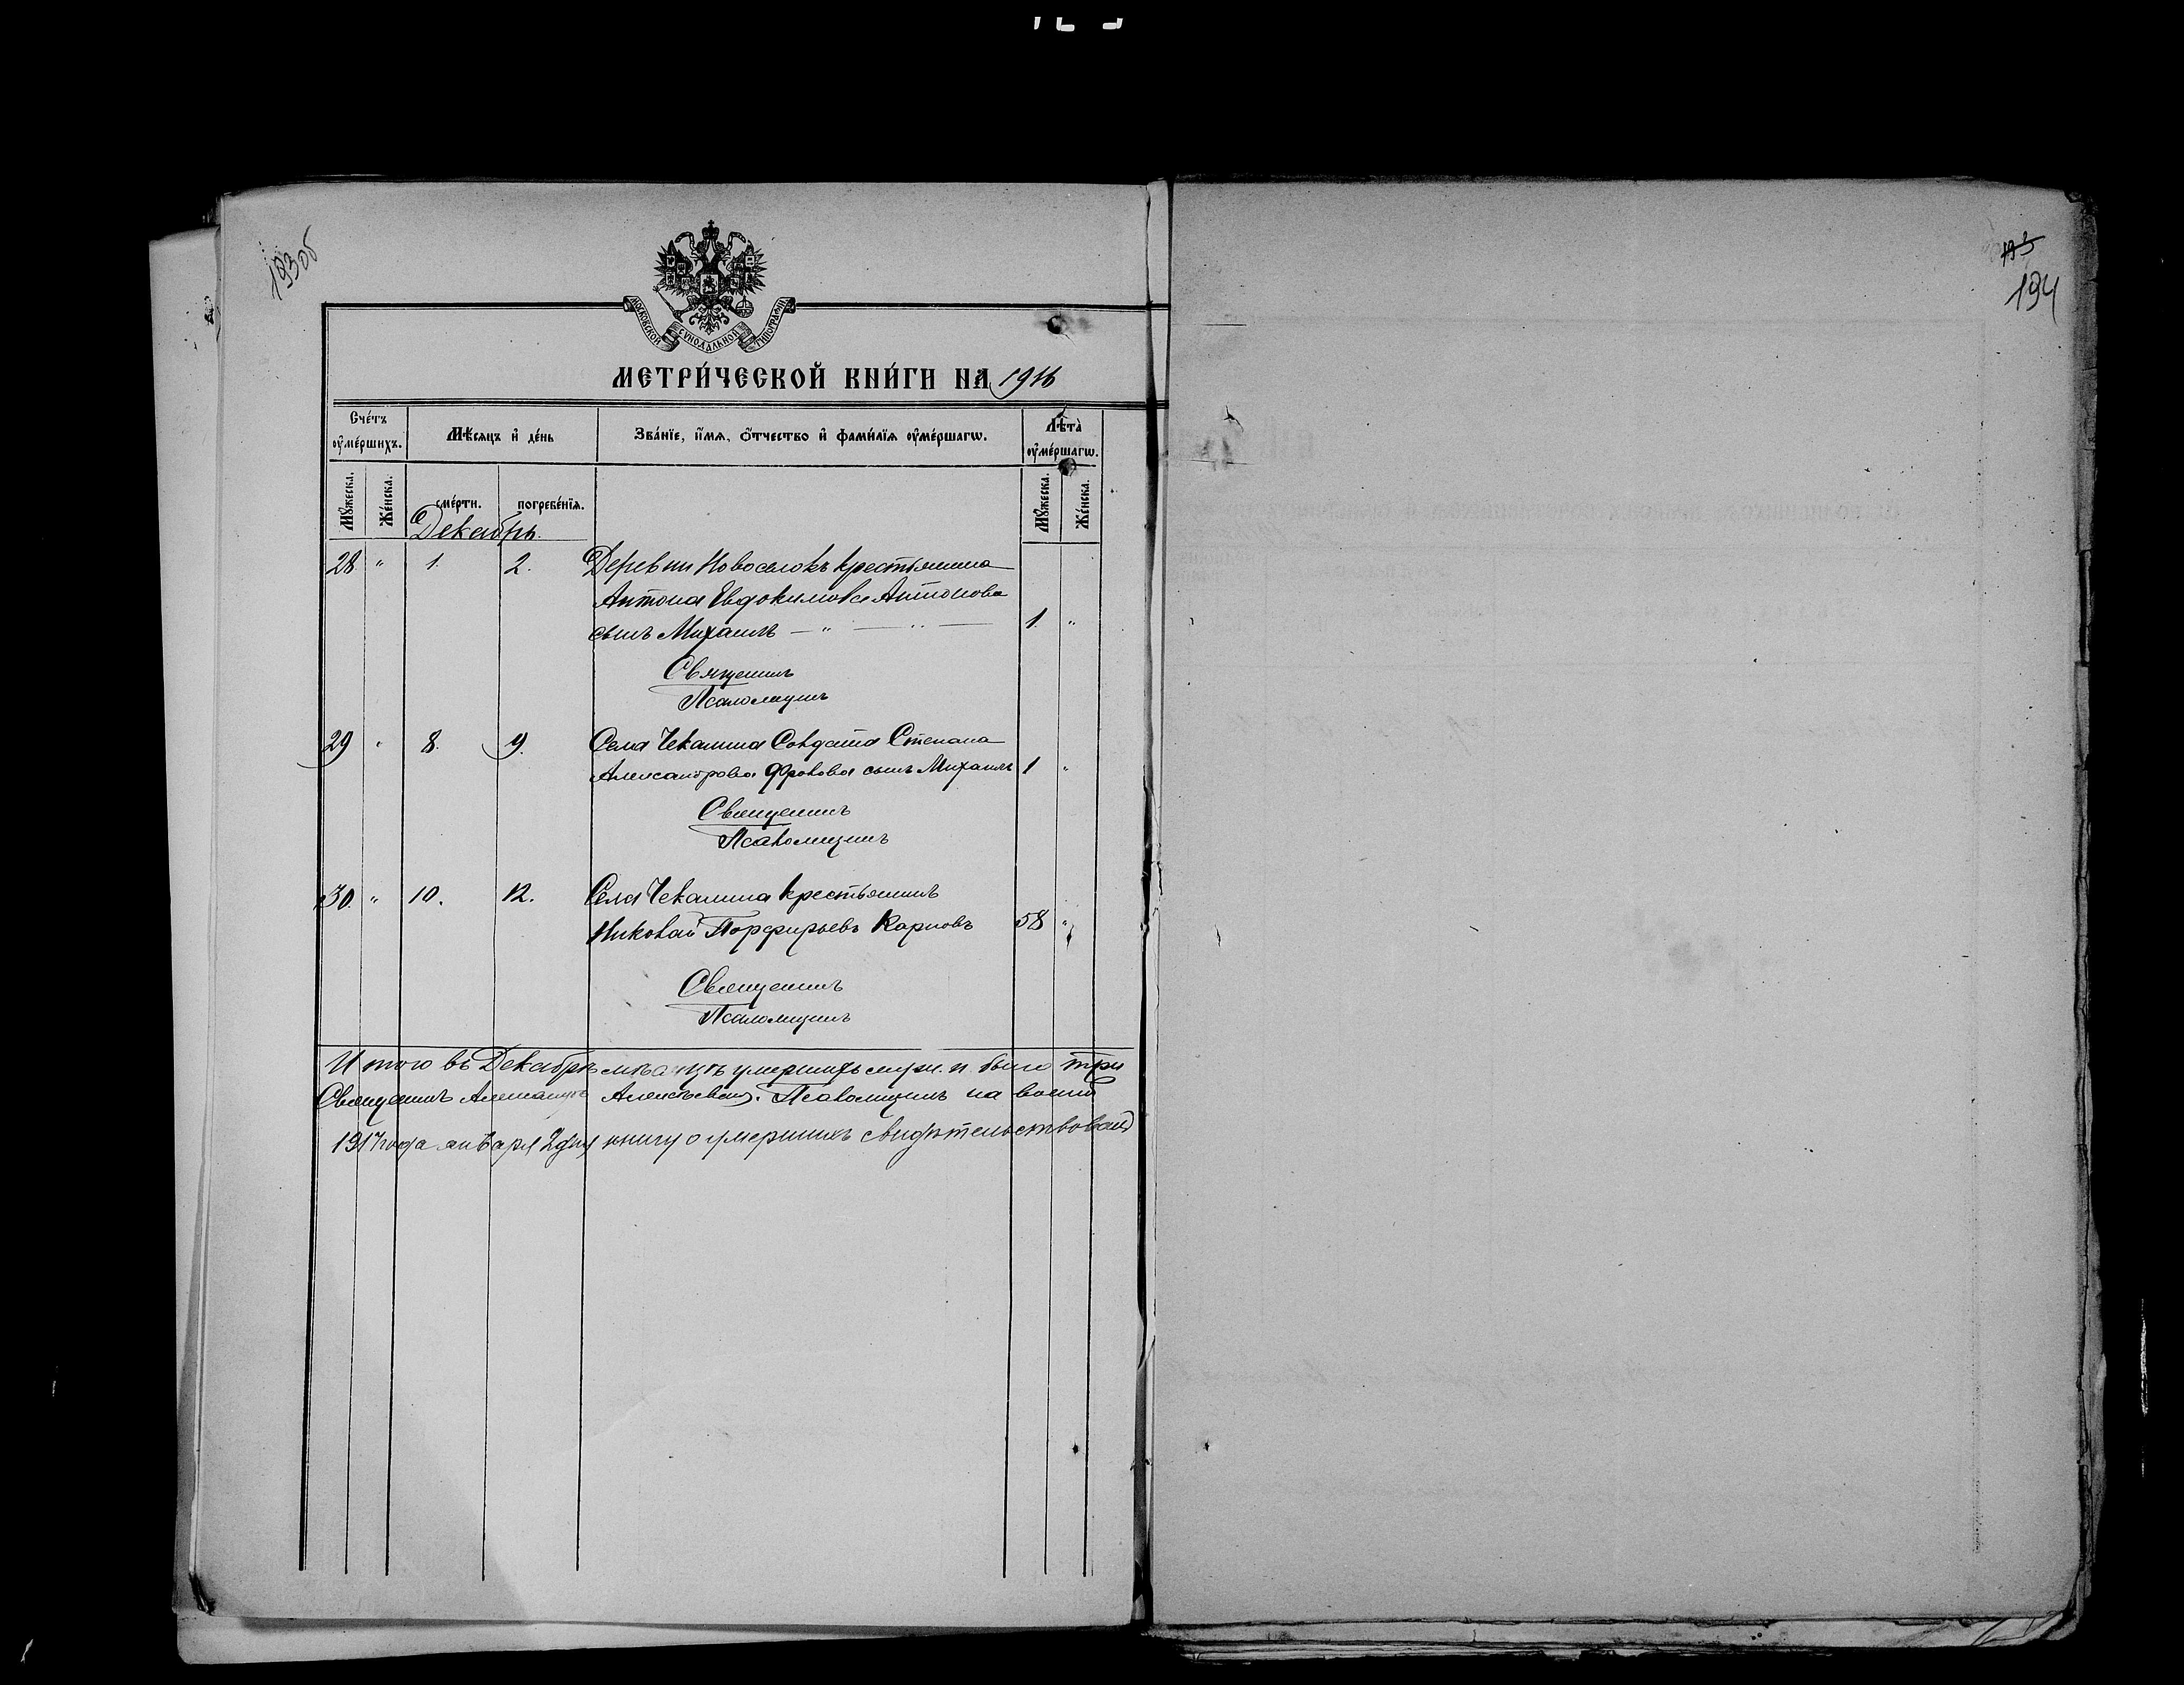 193об
МОСКОВСКОЙ СѴНОДАЛЬНОЙ ТИПОГРАФІИ
МЕТРИ́ЧЕСКОЙ КНИ́ГИ НА 1916
Сче́тъ оу҆ме́ршихъ.
Мѣ́сяцъ и҆ де́нь
Зва́нїе, и҆́мѧ, ѻ҆́тчество и҆ фами́лїѧ оу҆ме́ршагѡ.
Лѣ́та оу҆ме́ршагѡ.
Мꙋ́жеска.
Же́нска.
сме́рти.
погребе́нїѧ.
Мꙋ́жеска.
Же́нска.
Декабрь.
28. " 1. 2. Деревни Новоселокъ крестьянина
Антона Евдокимова Антонова
сынъ Михаилъ — " — " — 1. "
Священникъ
Псаломщикъ
29 " 8. 9. Села Чекалина Солдата Степана
Александрова Фролова сынъ Михаилъ 1 "
Священникъ
Псаломщикъ
30. " 10. 12. Села Чекалина крестьянинъ
Николай Порфирьевъ Карповъ 58 "
Священникъ
Псаломщикъ
Итого въ Декабрѣ мѣсяцѣ умершихъ муж. п. было три
Священникъ Александръ Алексѣевскій. Псаломщикъ на войнѣ
1917 года января 2 дня книгу о умершихъ свидѣтельствовалъ
193
194